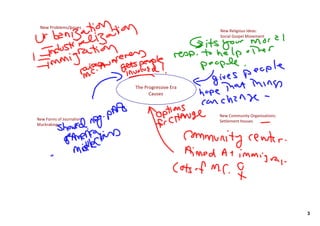 New Problems/Issues
Urbanization
Industrialization
immigration
raises awareness
M.C.
Gets people
involved!
New Religious Ideas:
Social Gospel Movement
its your moral
resp. to help other
people.
gives people
hope that things
can change -
The Progressive Era
Causes
New Forms of Journalism:
Muckrakers
options
for change
New Community Organizations:
Settlement Houses
Community center.
Aimed At immigra
Lots of M.C.
3